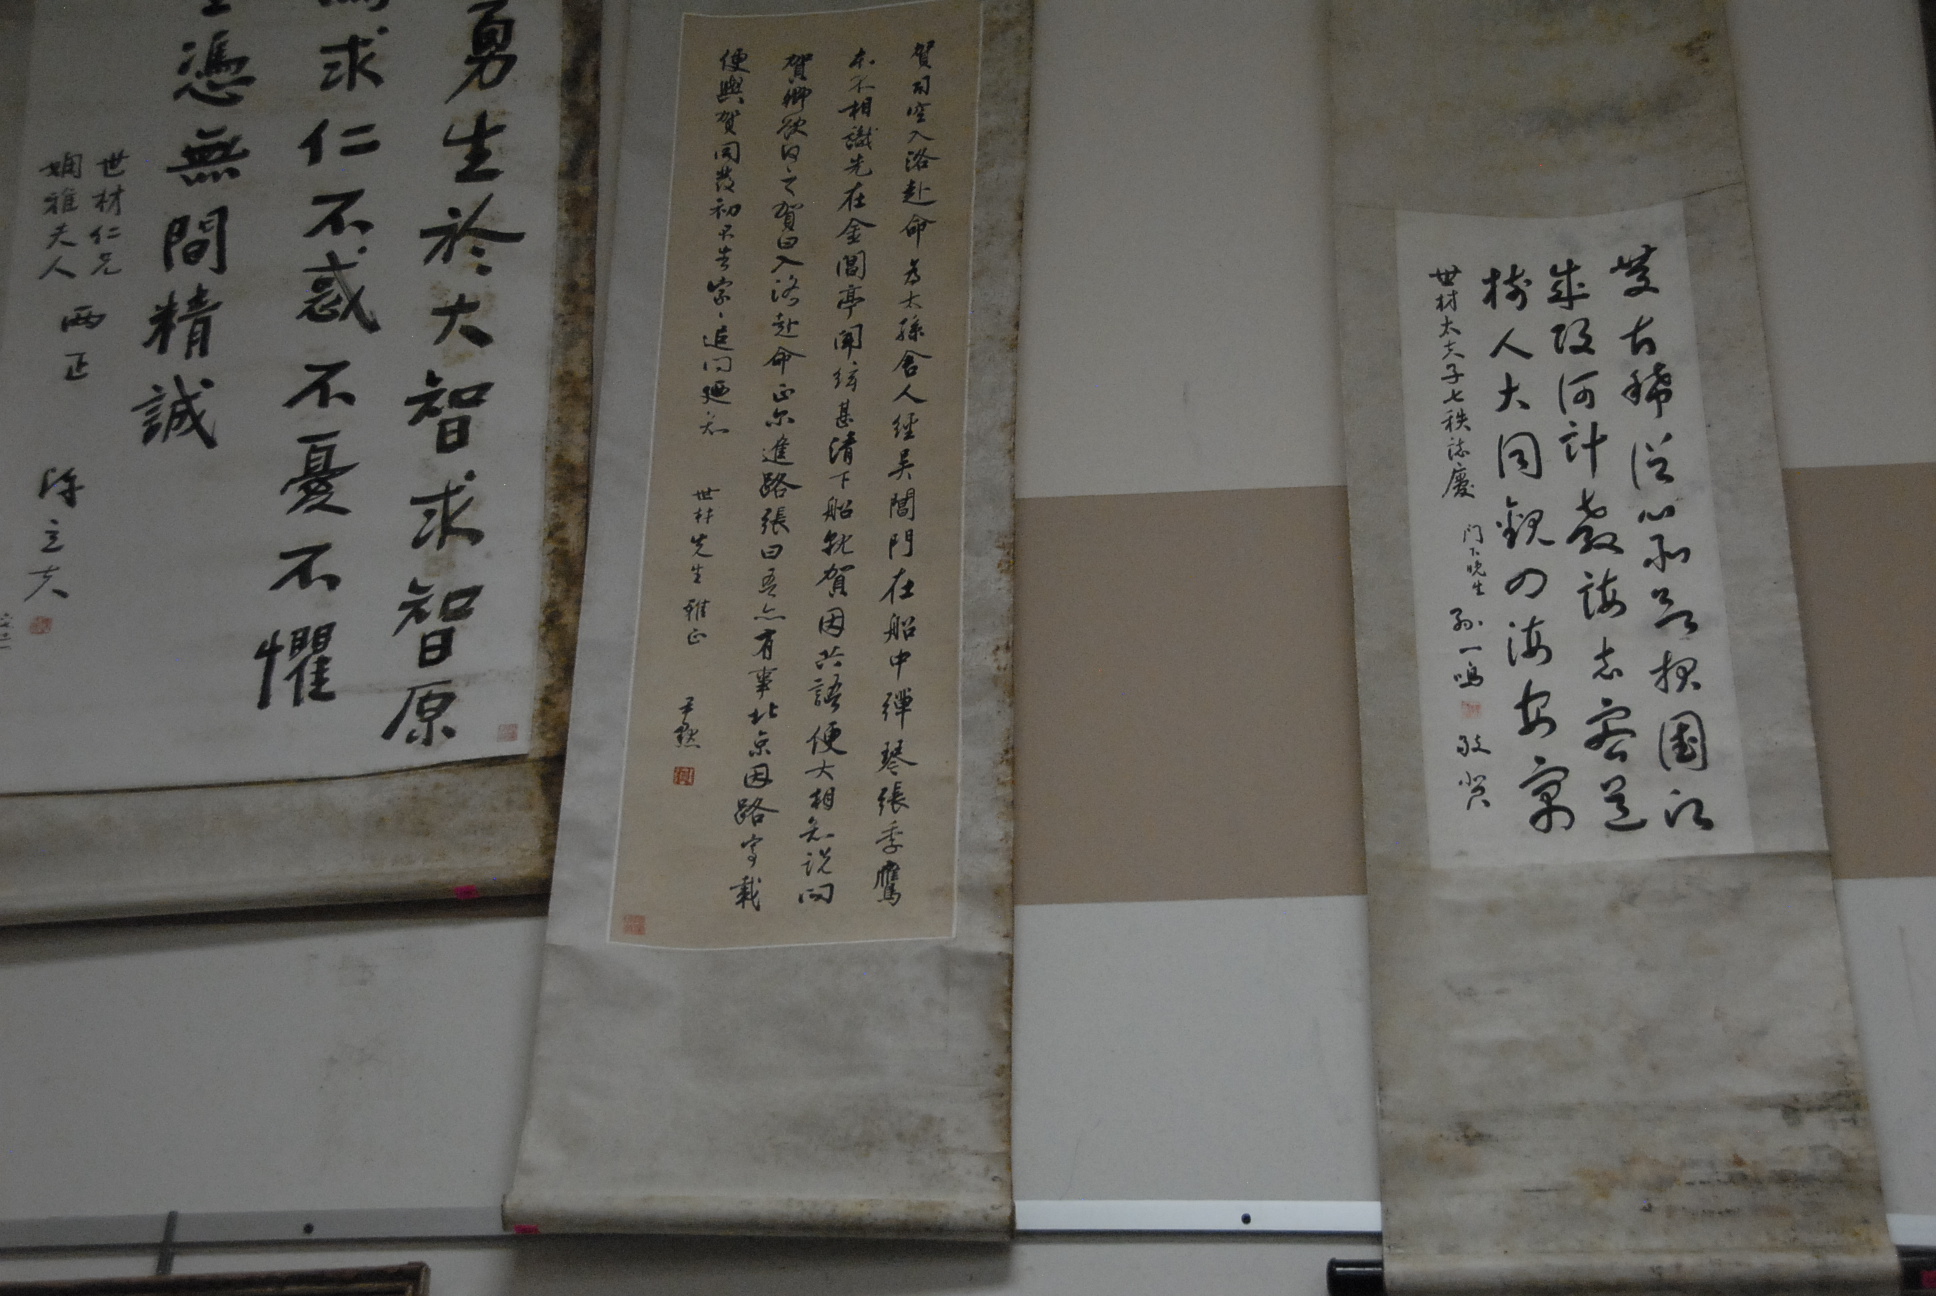 古稀從心國
何計教誨志
樹人大同觀四海安
世材太夫子七秩誌慶
門下晚生 孫一鳴 敬賀
賀司空入洛赴命為太孫舍人經吳閶門在船中彈琴張季鷹
本不相識先在金閶亭聞絃甚清下船就賀因共語便大相知說問
賀卿欲何之賀曰入洛赴命正爾進路張曰吾亦有事北京因路寄載
便與賀同發初不告家〻追問迺知
世材先生 雅正
尹默
勇生於大智求智原
求仁不惑不憂不懼
憑無間精誠
世材仁兄
嫻雅夫人 兩正
陳立夫